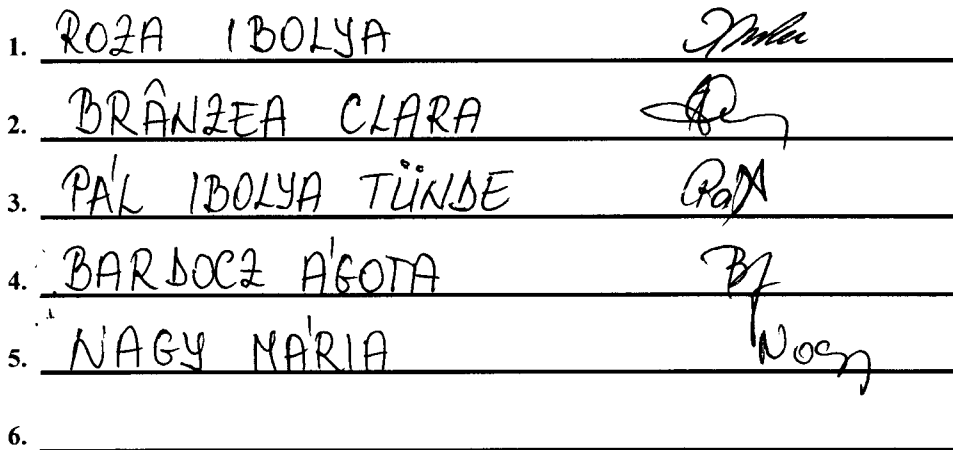 1. ROZA IBOLYA
2. BRÂNZEA CLARA
3. PÁL IBOLYA TÜNDE
4. BARDOCZ ÁGOTA
5. NAGY MÁRIA
6.